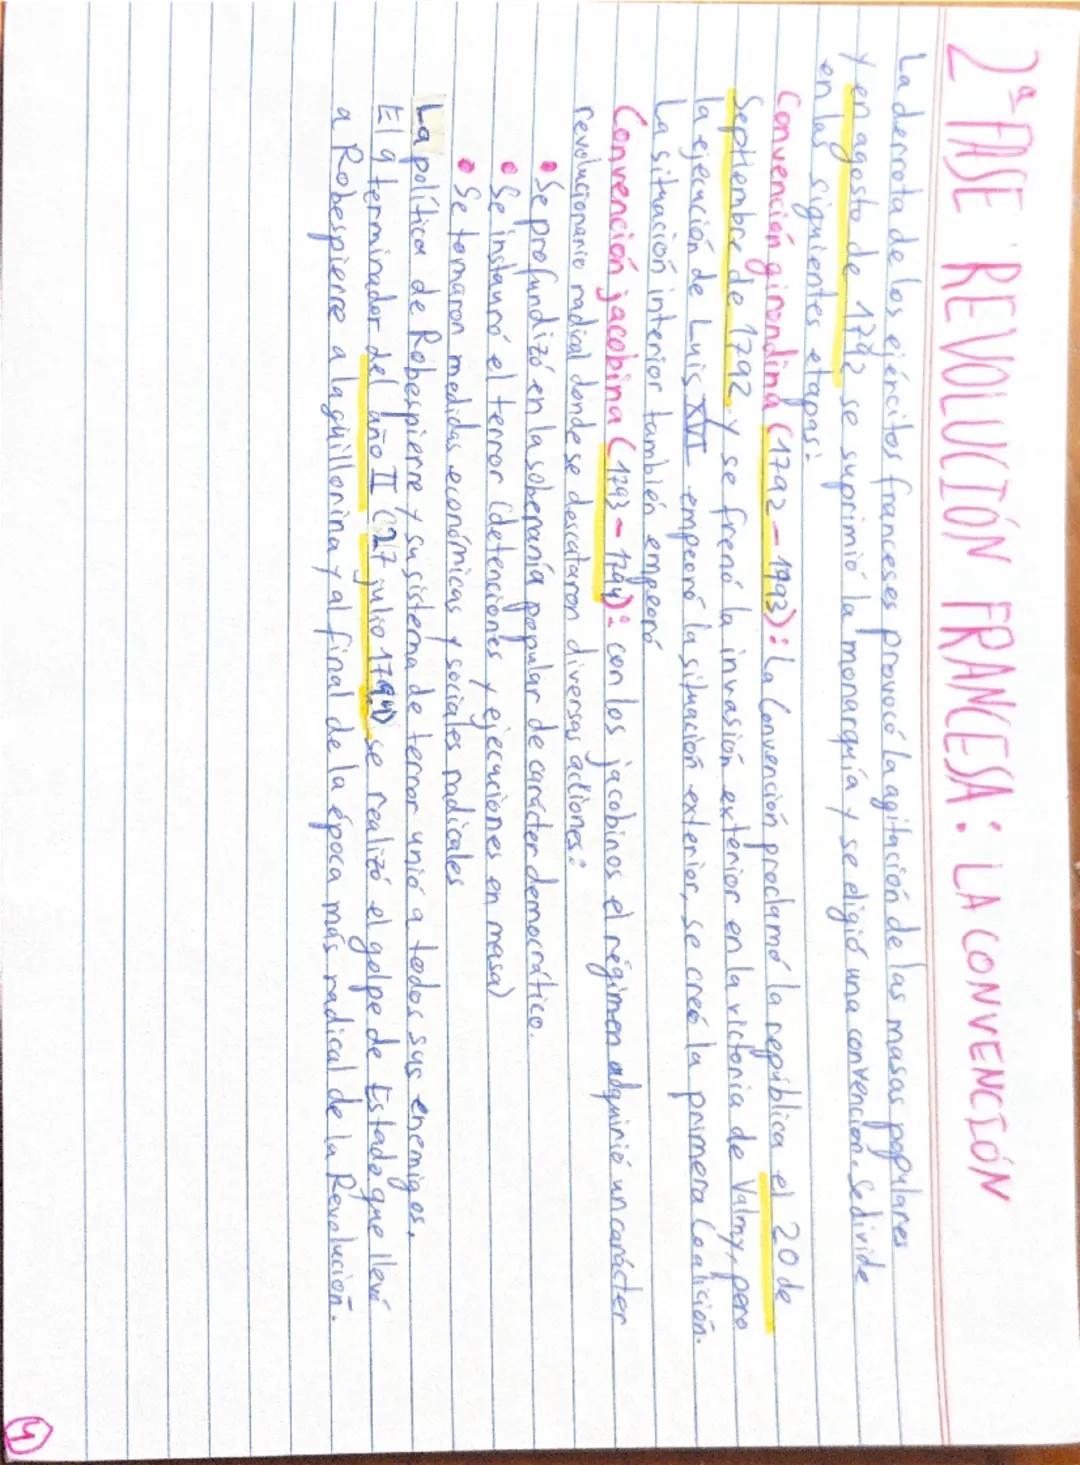 2ª FASE REVOLUCIÓN FRANCESA: LA CONVENCIÓN
La derrota de los ejércitos franceses provocó la agitación de las masas populares
y en agosto de 1792 se suprimió la monarquía y se eligió una convención. Se divide
en las siguientes etapas:
Convención girondina (1792-1993): La Convención proclamó la república el 20 de
Septiembre de 1792 y se frenó la invasión exterior en la victoria de Valmy, pero
la ejecución de Luis XVI empeoró la situación exterior, se creó la primera Coalición.
La situación interior también empeoró
Convención jacobina (1793-1794): con los jacobinos el régimen adquirió un carácter
revolucionario radical donde se descataron diversas acciones:
• Se profundizó en la soberanía popular de carácter democrático.
• Se instauró el terror (detenciones y ejecuciones en masa)
• Se tomaron medidas económicas y sociales radicales
La política de Robespierre y su sistema de terror unió a todos sus enemigos.
El 9 terminador del año II (27 julio 1794) se realizó el golpe de Estado que llevó
a Robespierre a la guillonina y al final de la época más radical de la Revolución.
4